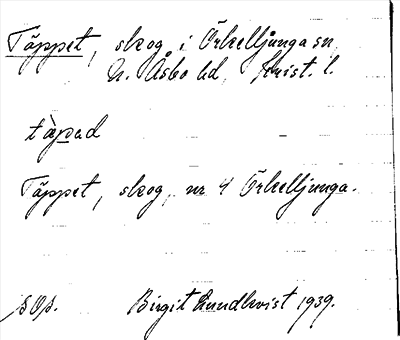 Täppet, skog i Örkelljunga sn
N. Åsbo hd, Krist. l.
tàpad
Täppet, skog, nr 4 Örkelljunga.
sop. Birgit Lundkvist 1939.